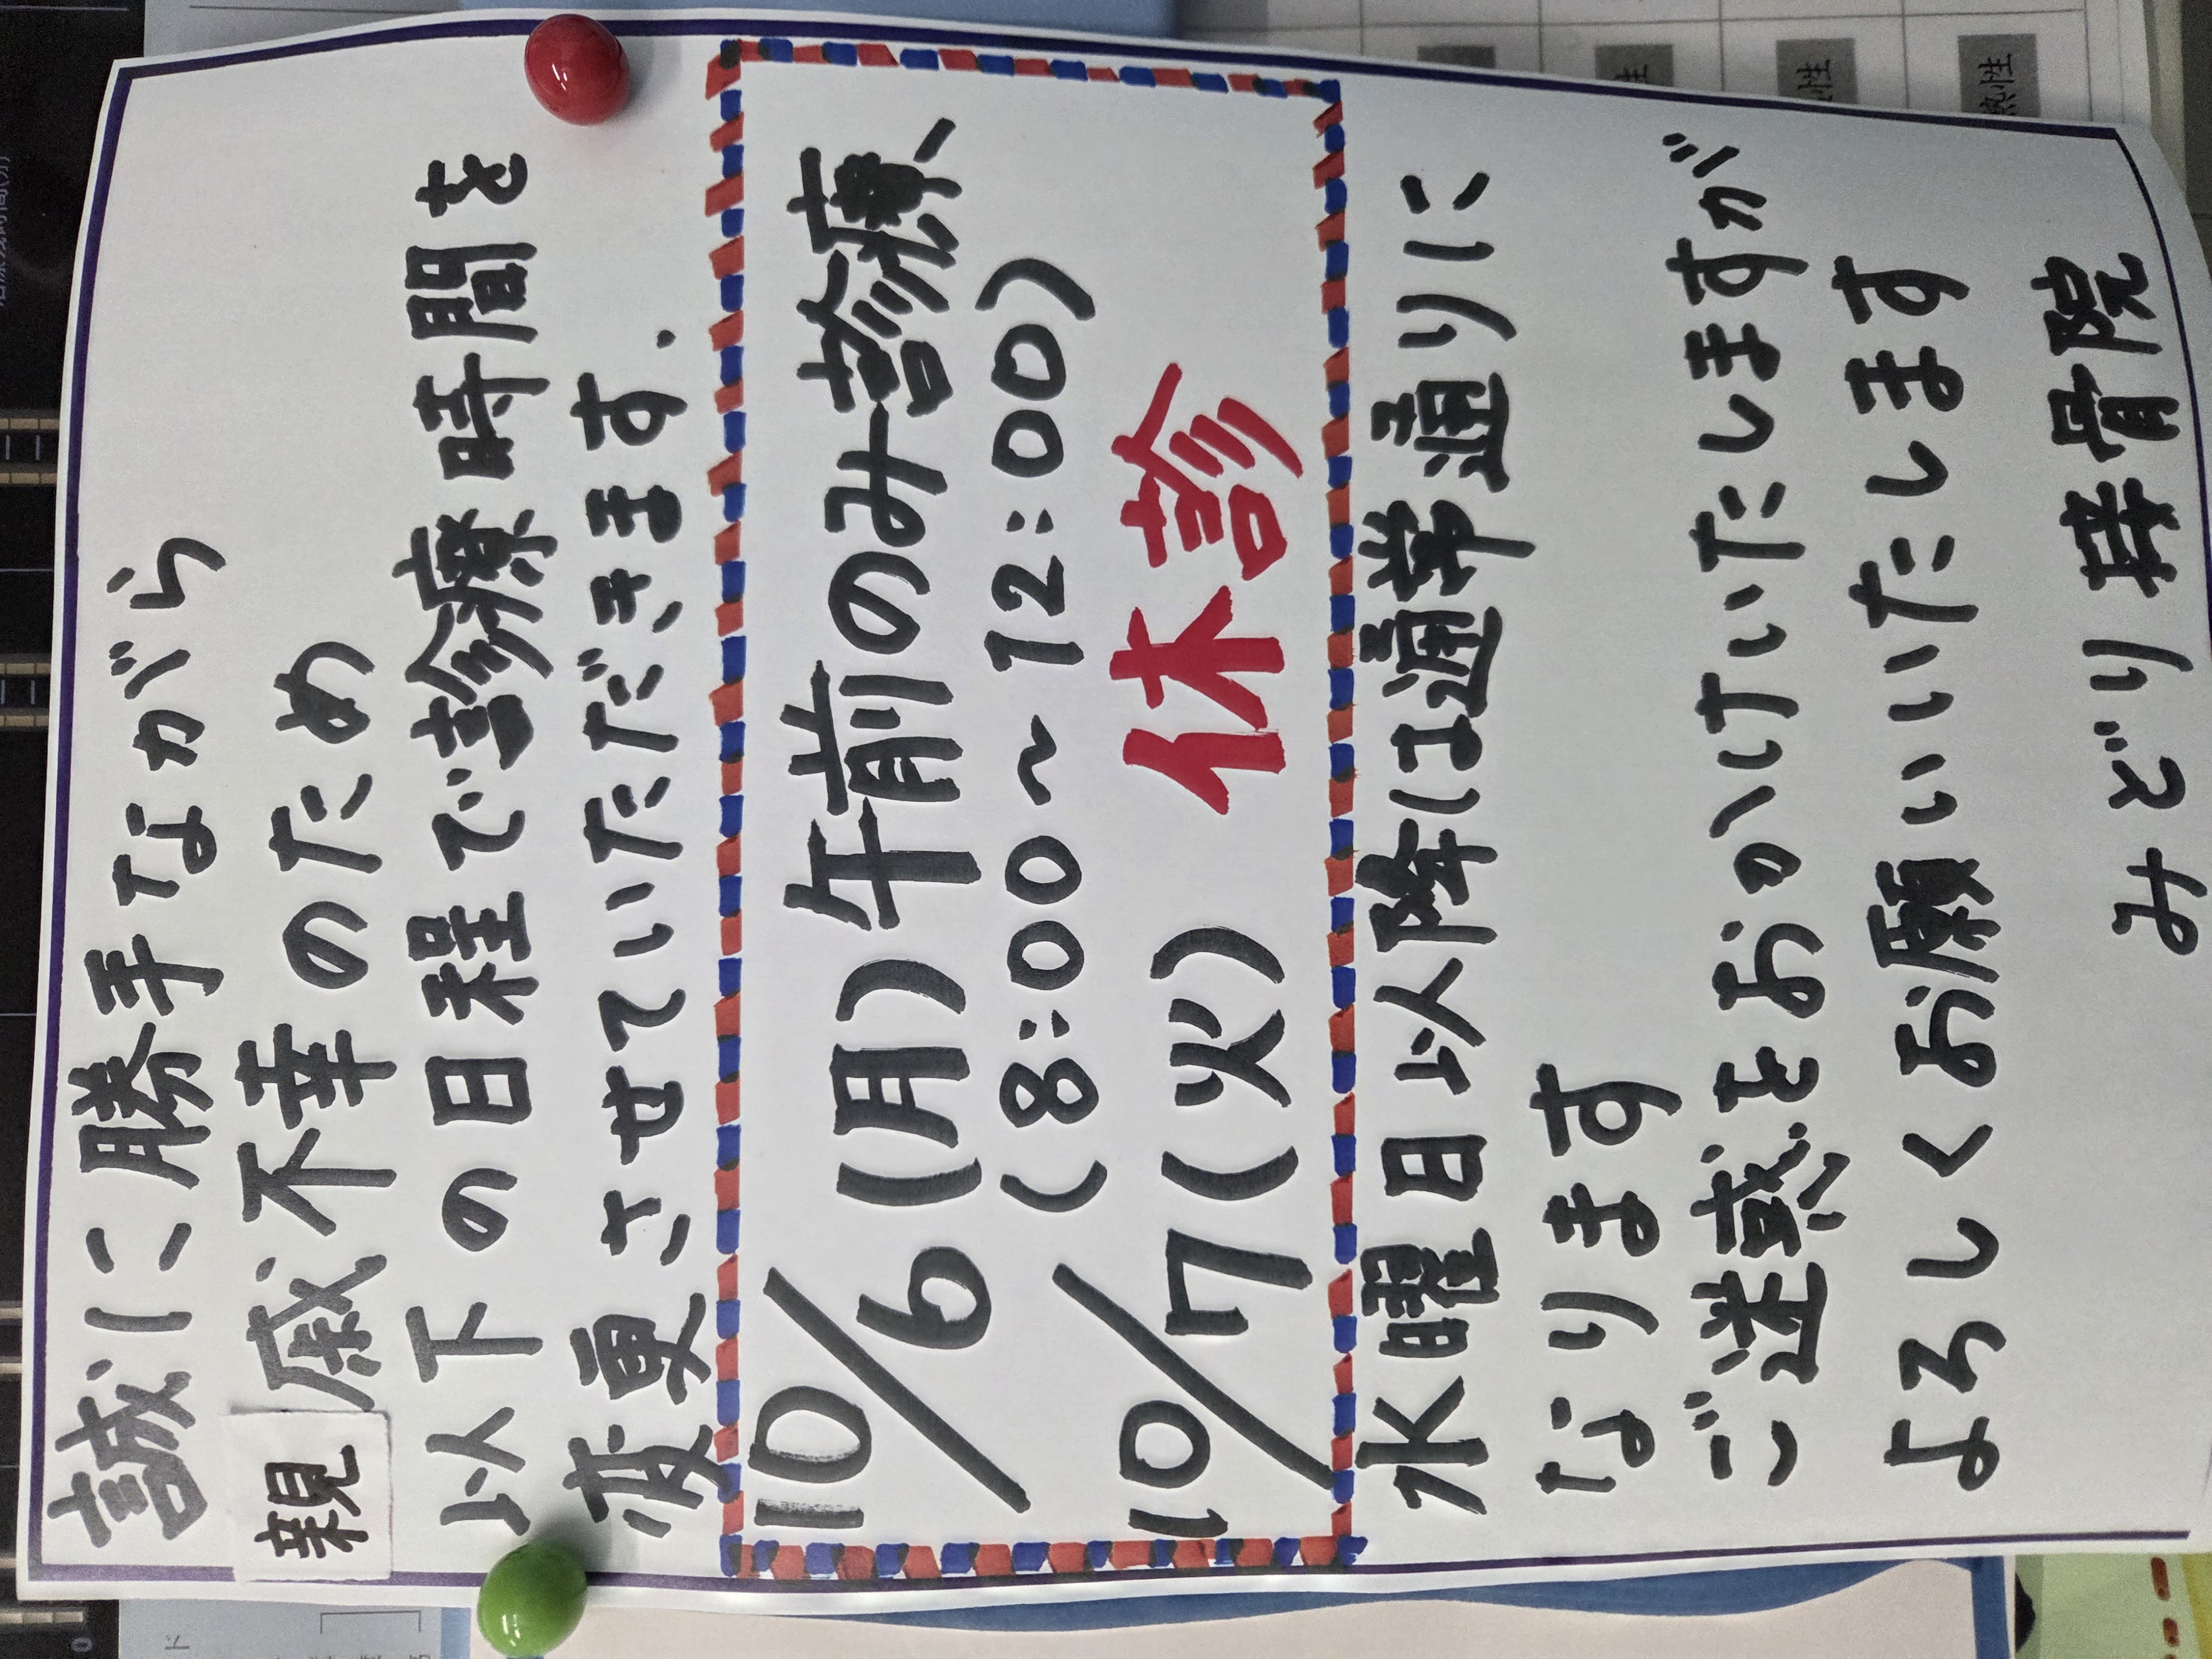 誠に勝手ながら
親戚不幸のため
以下の日程で診療時間を
変更させていただきます.
10/6(月)午前のみ診療、
(8:00～12:00)
10/7(火) 休診
水曜日以降は通常通りに
なります
ご迷惑をおかけいたしますが
よろしくお願いいたします
みどり接骨院